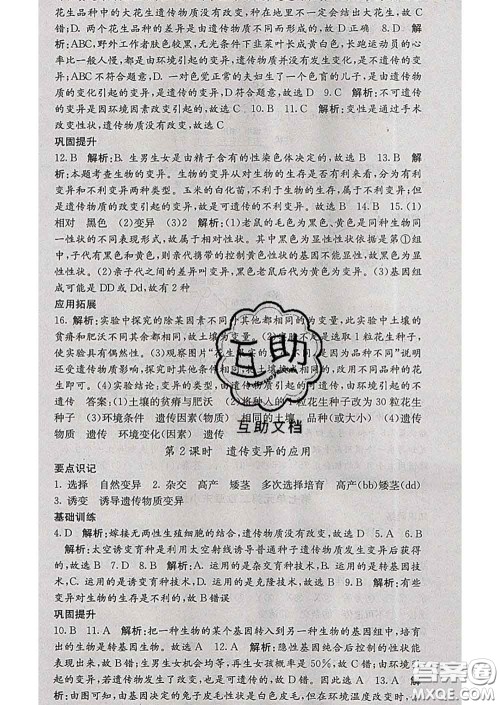 花生品种中的大花生遗传物质没有改变，种在地里不一定会结出大花生，故 C
错；D. 两个花生的差异是由遗传物质不同而形成的，故 D 正确　8. D　解
析：ABC，野外工作者肤色较黑，无光条件下韭菜叶长成黄白色，长跑运动员的心
率比一般人慢，都是由环境引起的变异，遗传物质并没有发生变化，是不遗传的变
异；ABC 不符合题意，D. 一对色觉正常的夫妇生了一个色盲的儿子，是由遗传物
质的变化引起的变异，是遗传的变异，D 符合题意，故选 D　9. C　解析：不可遗传
的变异是因环境因素改变引起的，故选 C　10. B　11. C　解析：变性是通过手术
改变性状，遗传物质没有改变，故选 C
巩固提升
12. B　解析：B. 生男生女是由精子含有的性染色体决定的，故选 B　13. B　解
析：本题考查生物的变异。生物的变异从对生物的生存是否有利来看，分为有利
变异和不利变异两种类型。玉米的白化苗，不利于生物的生存，属于不利变异，但
是遗传物质的改变引起的，属于可遗传的变异，故选 B　14. B　15. (1)
相对　黑色　(2)变异　(3)2　解析：(1)老鼠的毛色为黑色、黄色是同种生物同
一性状的不同表现形式，故属于相对性状。其中黑色为显性性状依据是第①组
中，子代有黑色和黄色，则亲代携带的控制黄色性状的基因不能显性，故黑色为显
性性状。(2)亲子代之间的差异叫变异，黑色老鼠后代为黄色为变异。(3)基因组
成可能是 DD 或 Dd，故有 2 种
应用拓展
16. 解析：实验中探究的除某因素不同外其他都相同的为变量，此实验中土壤的
使实验具有偶然性。(3)观察图片
花生即可。(4)实验结论：变异的
遗传　答案：(1)土壤的贫瘠与肥沃　(2)将种入的 1 粒花生种子改为 30 粒花生
种子　(3)环境条件　遗传因素　相同的土壤、品种(或大小)　(4)遗传
物质　遗传　环境变化(因素)　遗传
互助
互助文档
第 2 课时　遗传变异的应用
要点识记
1. 选择　自然变异　2. 杂交　高产　矮茎　多次选择培育　高产(bb)矮茎(dd)
3. 诱变　诱导遗传物质变异
基础训练
4. D　解析：嫁接无两性生殖细胞的结合，遗传物质没有改变，故选 D　5. A　6. B
解析：太空诱变育种是利用太空射线诱导普通种子遗传物质发生变异后获得
的，故选 B　7. D　8. B　解析：A. 运用的是杂交育种技术，B. 运用的是转基因技
术，C. 运用的是诱变育种技术，D. 运用的是克隆技术，故选 B　9. B　解析：有些
变异对生物的生存是不利的，故 B 错误
巩固提升
10. B　11. A　解析：把一种生物的某个基因转入到另一种生物的基因组中，培育
出的生物是转基因生物，故选 A　12. B　解析：隐性基因纯合后控制的性状能
表现出来，故 B 错；生男生女机会均等，再生女孩概率是 50%，故 C 错；由环境引
起的变异，其遗传物质没有改变，不可遗传，故 D 错　13. A　14. C　15. A
解析：由图可知，由基因决定的兔子皮毛性状是白色皮毛，但在环境温度改变时，
答案圈
MXQE.COM